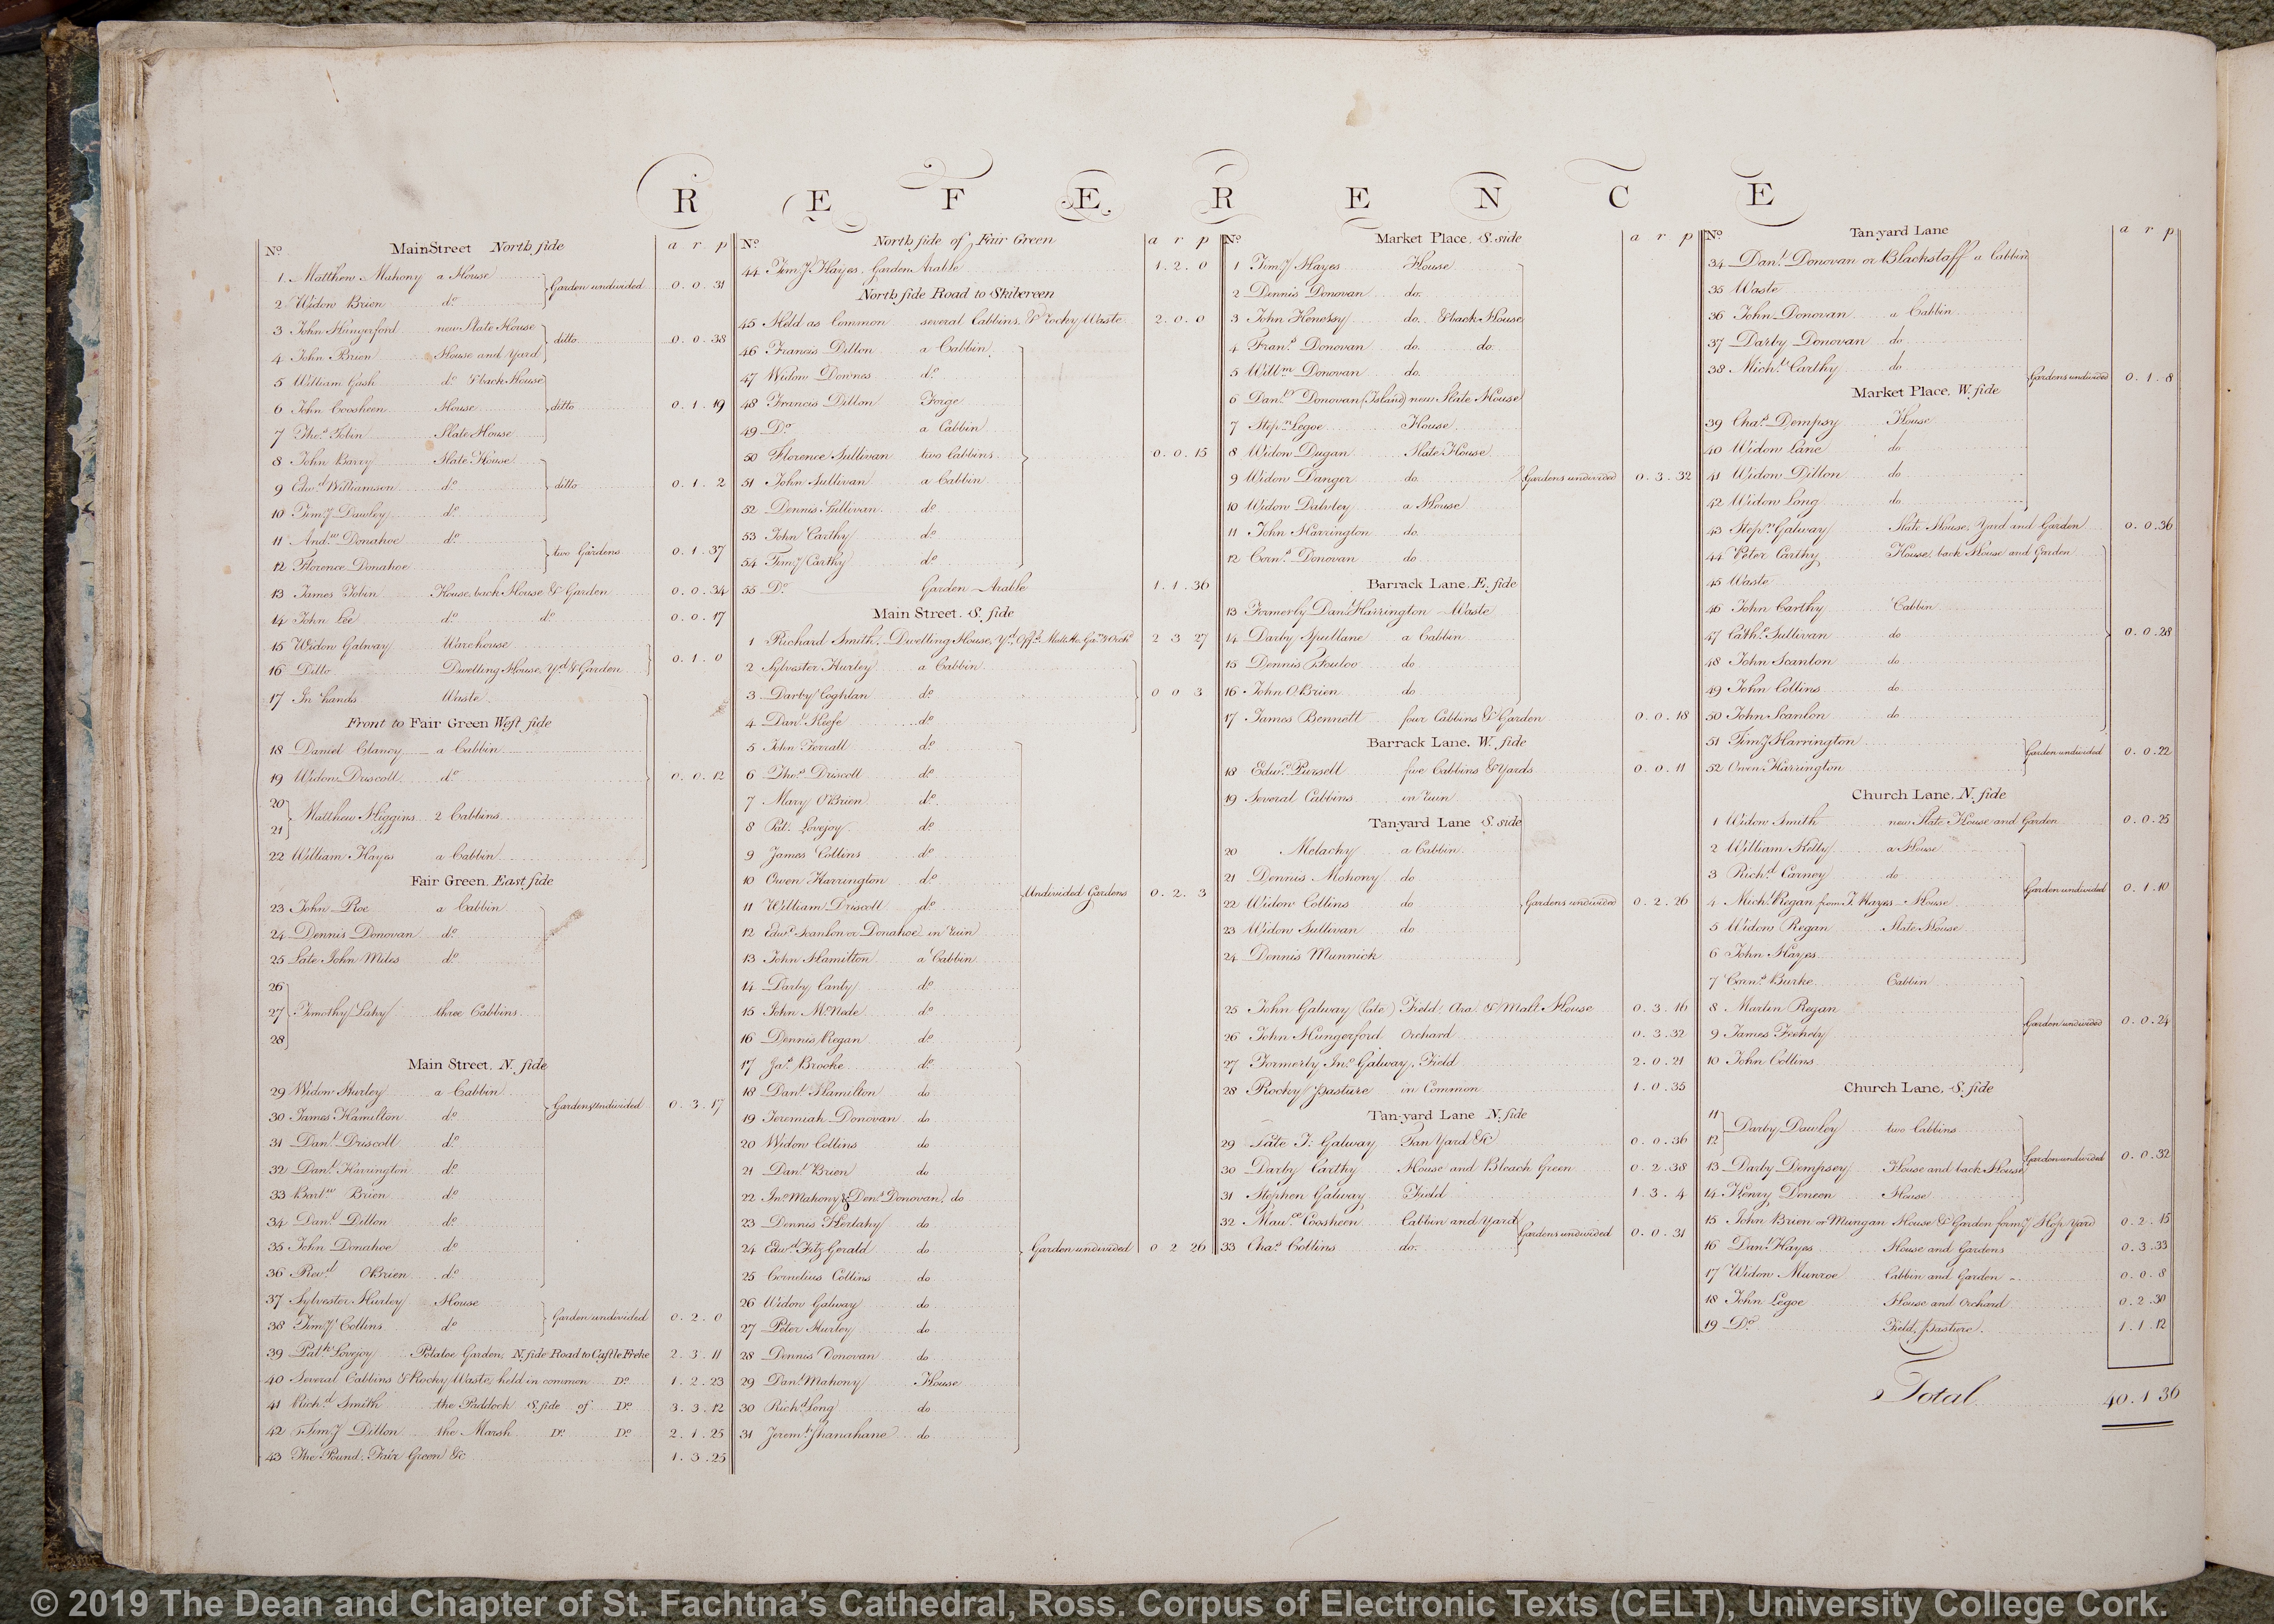 REFERENCE
No. MainStreet North side a r p
1 Matthew Mahony a House Garden undivided 0.0.31
2 Widow Brien do.
3 John Hungerford new Slate House ditto 0.0.38
4 John Brien House and Yard
5 William Gash do. & back House
6 John Coosheen House ditto 0.1.19
7 Thos. Tobin Slate House
8 John Barry Slate House
9 Edwd. Williamson do. ditto 0.1.2
10 Timy. Dawley do.
11 Andw. Donahoe do. two Gardens 0.1.37
12 Florence Donahoe
13 James Tobin House, back House & Garden 0.0.34
14 John Lee do. do. 0.0.17
15 Widow Galway Warehouse 0.1.0
16 Ditto Dwelling House, Yd. & Garden
17 In hands Waste
Front to Fair Green West side
18 Daniel Clancy a Cabbin
19 Widow Driscoll do. 0.0.12
20
21 Matthew Higgins 2 Cabbins
22 William Hayes a Cabbin
Fair Green, East side
23 John Roe a Cabbin
24 Dennis Donovan do.
25 Late John Miles do.
26
27 Timothy Lahy three Cabbins
28
Main Street, N. side
29 Widow Hurley a Cabbin Gardens undivided 0.3.17
30 James Hamilton do.
31 Danl. Driscoll do.
32 Danl. Harrington do.
33 Bartw. Brien do.
34 Danl. Dillon do.
35 John Donahoe do
36 Revd. OBrien do.
37 Sylvester Hurley House Garden undivided 0.2.0
38 Timy. Collins do
39 Patk. Lovejoy Potatoe Garden, N. side Road to Castle Freke 2.3.11
40 Several Cabbins & Rocky Waste, held in common Do. 1.2.23
41 Richd. Smith the Paddock S. side of Do. 3.3.12
42 Timy. Dillon the Marsh Do. Do. 2.1.25
43 The Pound, Fair Green &c 1.3.25
No. North side of Fair Green a r p
44 Timy. Hayes, Garden Arable 1.2.0
North side Road to Skibereen
45 Held as Common several Cabbins, & rocky Waste 2.0.0
46 Francis Dillon a Cabbin
47 Widow Downes do.
48 Francis Dillon Forge
49 Do. a Cabbin
50 Florence Sullivan two Cabbins 0.0.15
51 John Sullivan a Cabbin
52 Dennis Sullivan do.
53 John Carthy do.
54 Timy. Carthy do.
55 Do. Garden Arable 1.1.36
Main Street, S. side
1 Richard Smith, Dwelling House, Yd. Offs. Malt Ho. Gan. & Orchd. 2 3 27
2 Sylvester Hurley a Cabbin
3 Darby Coghlan do. 0 0 3
4 Danl. Keefe do.
5 John Forrall do.
6 Thos. Driscoll do.
7 Mary OBrien do.
8 Pat. Lovejoy do.
9 James Collins do.
10 Owen Harrington do. Undivided Gardens 0.2.3
11 William Driscoll do.
12 Edwd. Scanlon or Donahoe in ruin
13 John Hamilton a Cabbin
14 Darby Canty do.
15 John McNede do.
16 Dennis Regan do.
17 Jas. Brooke do.
18 Danl. Hamilton do
19 Jeremiah Donovan do
20 Widow Collins do
21 Danl. Brien do
22 Jno. Mahony & Dens. Donovan, do
23 Dennis Herlahy do
24 Edwd. Fitz Gerald do Garden undivided 0 2 26
25 Cornelius Collins do
26 Widow Galway do
27 Peter Hurley do
28 Dennis Donovan do
29 Danl. Mahony House
30 Richd. Long do
31 Jeremh. Shanahane do
No. Market Place, S. side a r p
1 Timy. Hayes House
2 Dennis Donovan do.
3 John Henessy do. & back House
4 Frans. Donovan do. do.
5 Willm. Donovan do.
6 Danl. Donovan (Island) new Slate House
7 Stepn. Legoe House
8 Widow Dugan Slate House
9 Widow Danger do. Gardens undivided 0.3.32
10 Widow Dawley a House
11 John Harrington do.
12 Corns. Donovan do
Barrack Lane, E. side
13 Formerly Danl. Harrington Waste
14 Darby Spullane a Cabbin
15 Dennis do.
16 John OBrien do
17 James Bennett four Cabbins & Garden 0.0.18
Barrack Lane, W. side
18 Edwd. Pursell five Cabbins & Yards 0.0.11
19 Several Cabbins in ruin
Tan-yard Lane S. side
20 Melachy a Cabbin
21 Dennis Mohony do
22 Widow Collins do Gardens undivided 0.2.26
23 Widow Sullivan do
24 Dennis Munnick
25 John Galway (late) Field, Ara. & Malt House 0.3.16
26 John Hungerford Orchard 0.3.32
27 Formerly Jno. Galway, Field 2.0.21
28 Rocky Pasture in Common 1.0.35
Tan-yard Lane N. side
29 Late J. Galway Tan Yard &c 0.0.36
30 Darby Carthy House and Bleach Green 0.2.38
31 Stephen Galway Field 1.3.4
32 Maurce. Coosheen Cabbin and Yard Gardens undivided 0.0.31
33 Chas. Collins do.
No. Tan-yard Lane a r p
34 Danl. Donovan or Blackstaff a Cabbin
35 Waste
36 John Donovan a Cabbin
37 Darby Donovan do
38 Michl. Carthy do Gardens undivided 0.1.8
Market Place, W. side
39 Chas. Dempsy House
40 Widow Lane do
41 Widow Dillon do
42 Widow Long do
43 Stepn. Galway Slate House, Yard and Garden 0.0.36
44 Peter Carthy House, back House and Garden
45 Waste
46 John Carthy Cabbin
47 Cathe. Sullivan do 0.0.28
48 John Scanlon do
49 John Collins do
50 John Scanlon do
51 Timy. Harrington Garden undivided 0.0.22
52 Owen Harrington
Church Lane, N. side
1 Widow Smith new Slate House and Garden 0.0.25
2 William Kelly a House
3 Richd. Carney do
4 Michl. Regan from T. Hayes House Garden undivided 0.1.10
5 Widow Regan Slate House
6 John Hayes
7 Corns. Burke Cabbin
8 Martin Regan Garden undivided 0.0.24
9 James Feehely
10 John Collins
Church Lane, S. side
11
12 Darby Dawley two Cabbins
13 Darby Dempsey House and back House Garden undivided 0.0.32
14 Henry Deneen House
15 John Brien or Mungan House & Garden formy. Hop Yard 0.2.15
16 Danl. Hayes House and Gardens 0.3.33
17 Widow Munroe Cabbin and Garden 0.0.8
18 John Legoe House and Orchard 0.2.30
19 Do. Field, Pasture 1.1.12
Total 40.1.36
© 2019 The Dean and Chapter of St. Fachtna's Cathedral, Ross. Corpus of Electronic Texts (CELT), University College Cork.